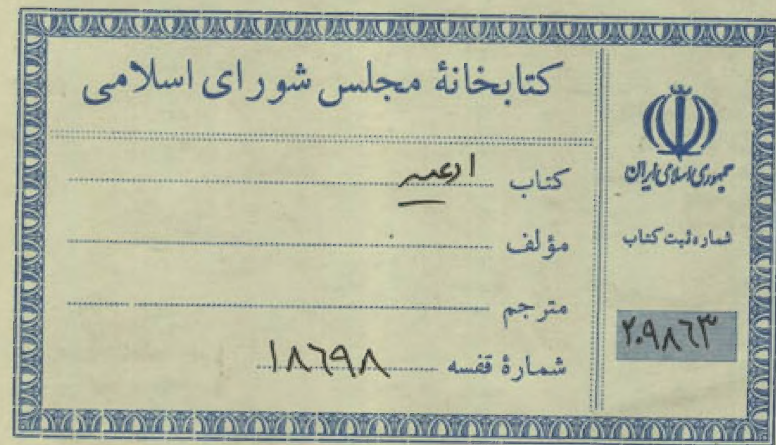 کتابخانهٔ مجلس شورای اسلامی
کتاب ادعیه
مؤلف
مترجم
شمارهٔ قفسه ۱۸۶۹۸
جمهوری اسلامی ایران
شماره ثبت کتاب
۲۰۹۸۶۳